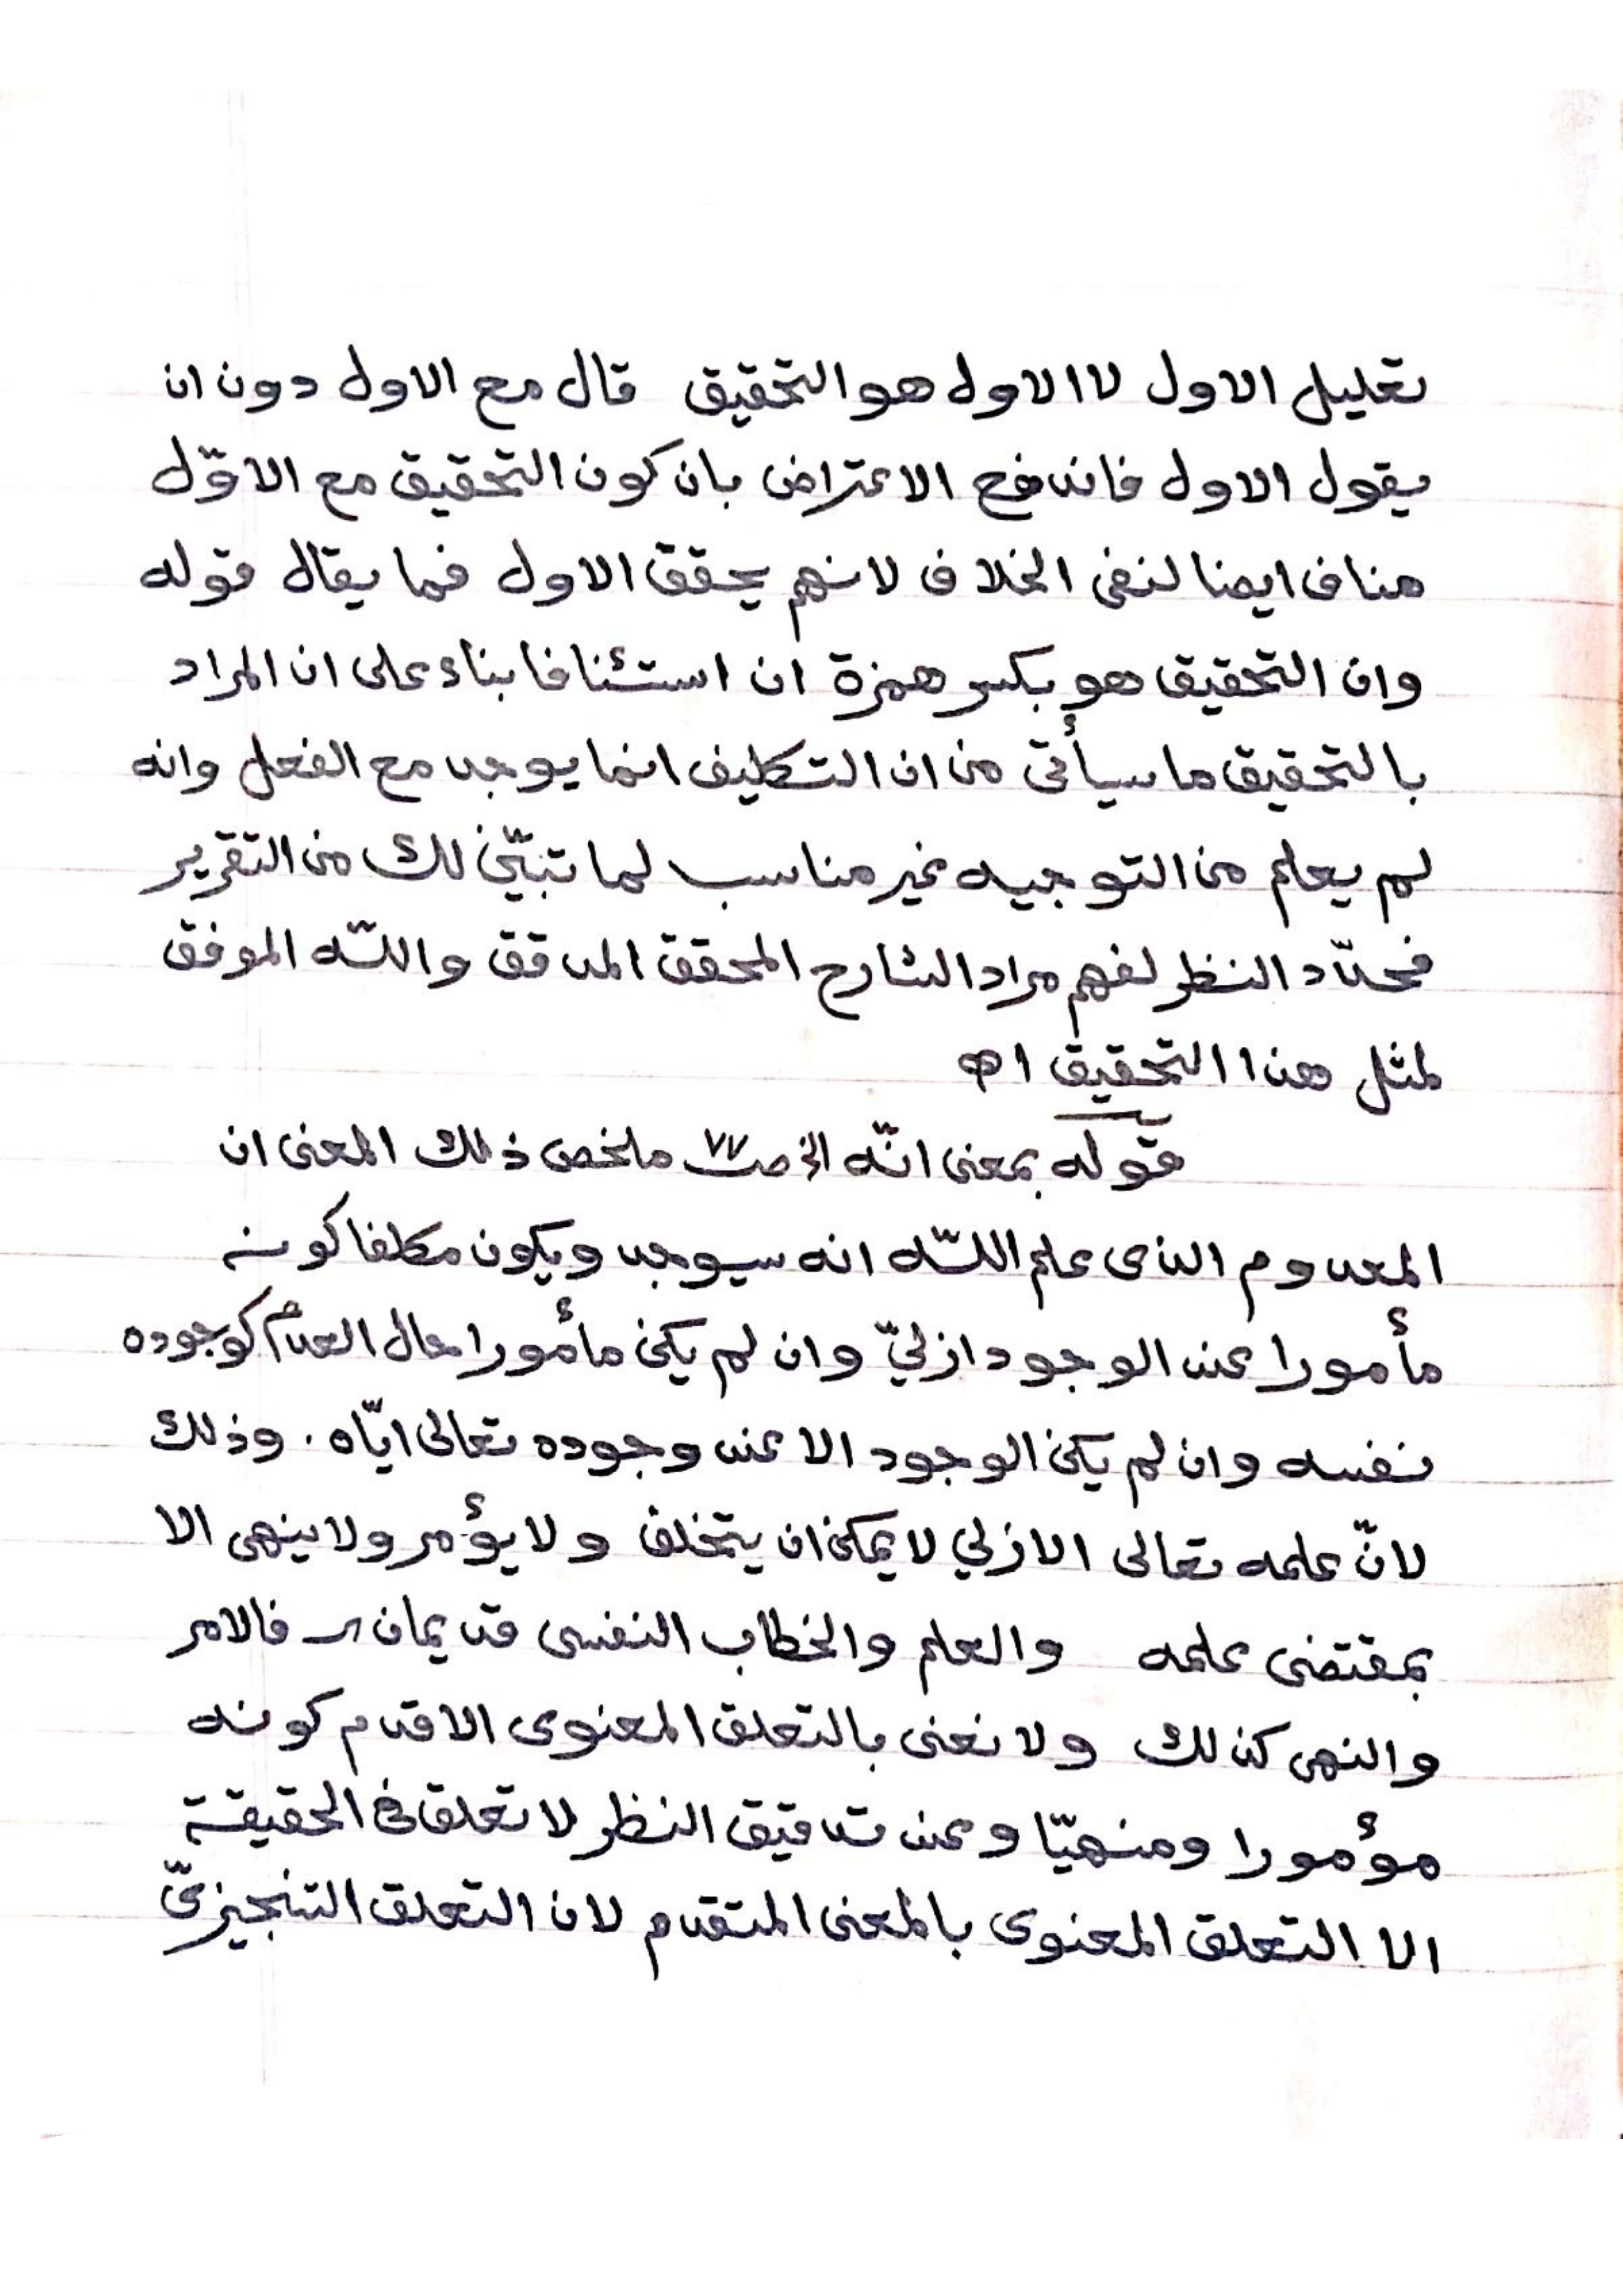 تعليل الاول لا الاول هو التحقيق قال مع الاول دون ان
يقول الاول فاندفع الاعتراض بان كون التحقيق مع الاوّل
مناف ايضا لنفى الخلاف لانهم يحقق الاول فما يقال قوله
وان التحقيق هو بكسر همزة ان استئنافا بناء على ان المراد
بالتحقيق ما سيأتى من ان التكليف انما يوجد مع الفعل وانه
لم يعلم من التوجيه غير مناسب لما تبيّن لك من التقرير
فحدّد النظر لفهم مراد الشارح المحقق المدقق واللّه الموفق
لمثل هذا التحقيق اه
قوله بمعنى انّه الخ صـ ٧٧ ملخص ذلك المعنى ان
المعدوم الذى علم اللّه انه سيوجد ويكون مكلفا كونه
مأمورا عند الوجود ازليّ وان لم يكن مأمورا حال العدم كوجوده
نفسه وان لم يكن الوجود الا عند وجوده تعالى ايّاه . وذلك
لانّ علمه تعالى الازلي لا يمكن ان يتخلف ولا يؤمر ولا ينهى الا
بمقتضى علمه والعلم والخطاب النفسى قديمان فالامر
والنهى كذلك ولا نعنى بالتعلق المعنوى الاقدم كونه
مؤمورا ومنهيّا وعند تدقيق النظر لا تعلق فى الحقيقة
الا التعلق المعنوى بالمعنى المتقدم لان التعلق التنجيزىّ